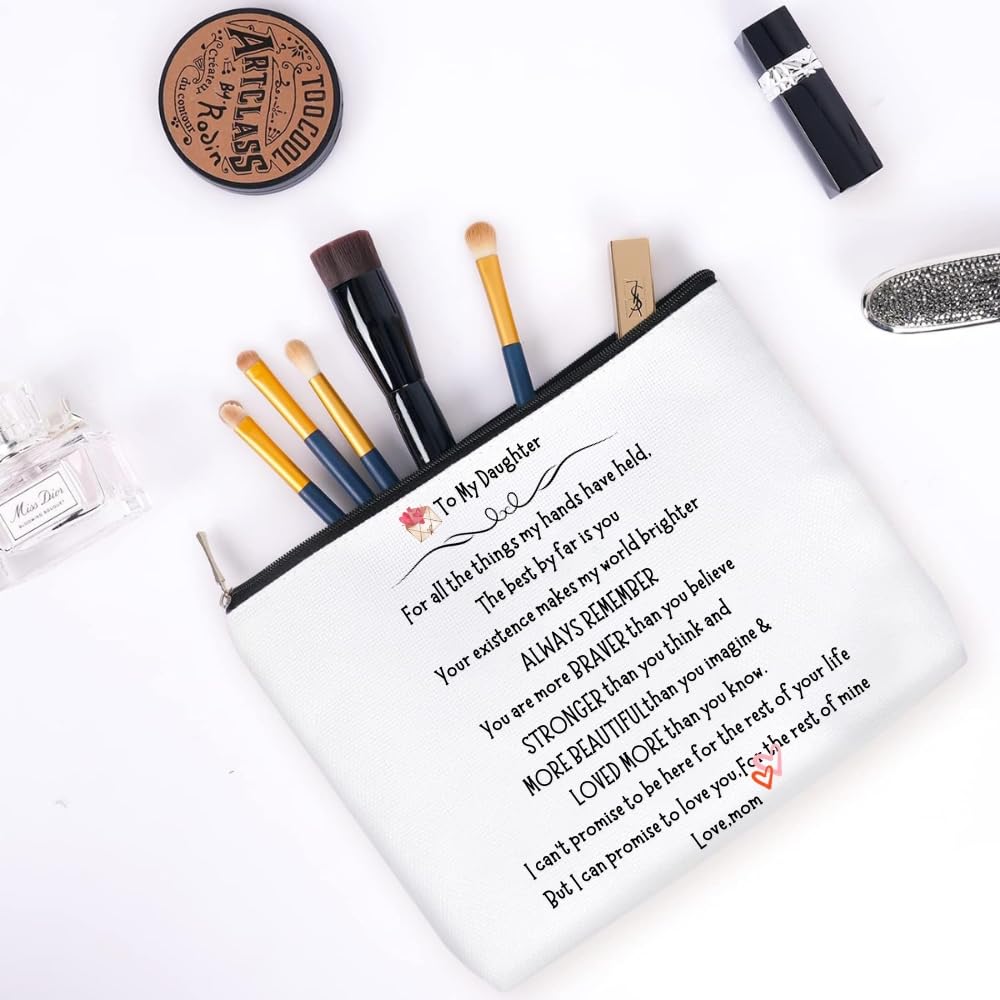 TOO COOL
ARTCLASS
By Rodin
Créateur
du contour
Miss Dior
BLOOMING BOUQUET
YSL
To My Daughter
For all the things my hands have held,
The best by far is you
Your existence makes my world brighter
ALWAYS REMEMBER
You are more BRAVER than you believe
STRONGER than you think and
MORE BEAUTIFUL than you imagine &
LOVED MORE than you know.
I can't promise to be here for the rest of your life
But I can promise to love you,For the rest of mine
Love,mom